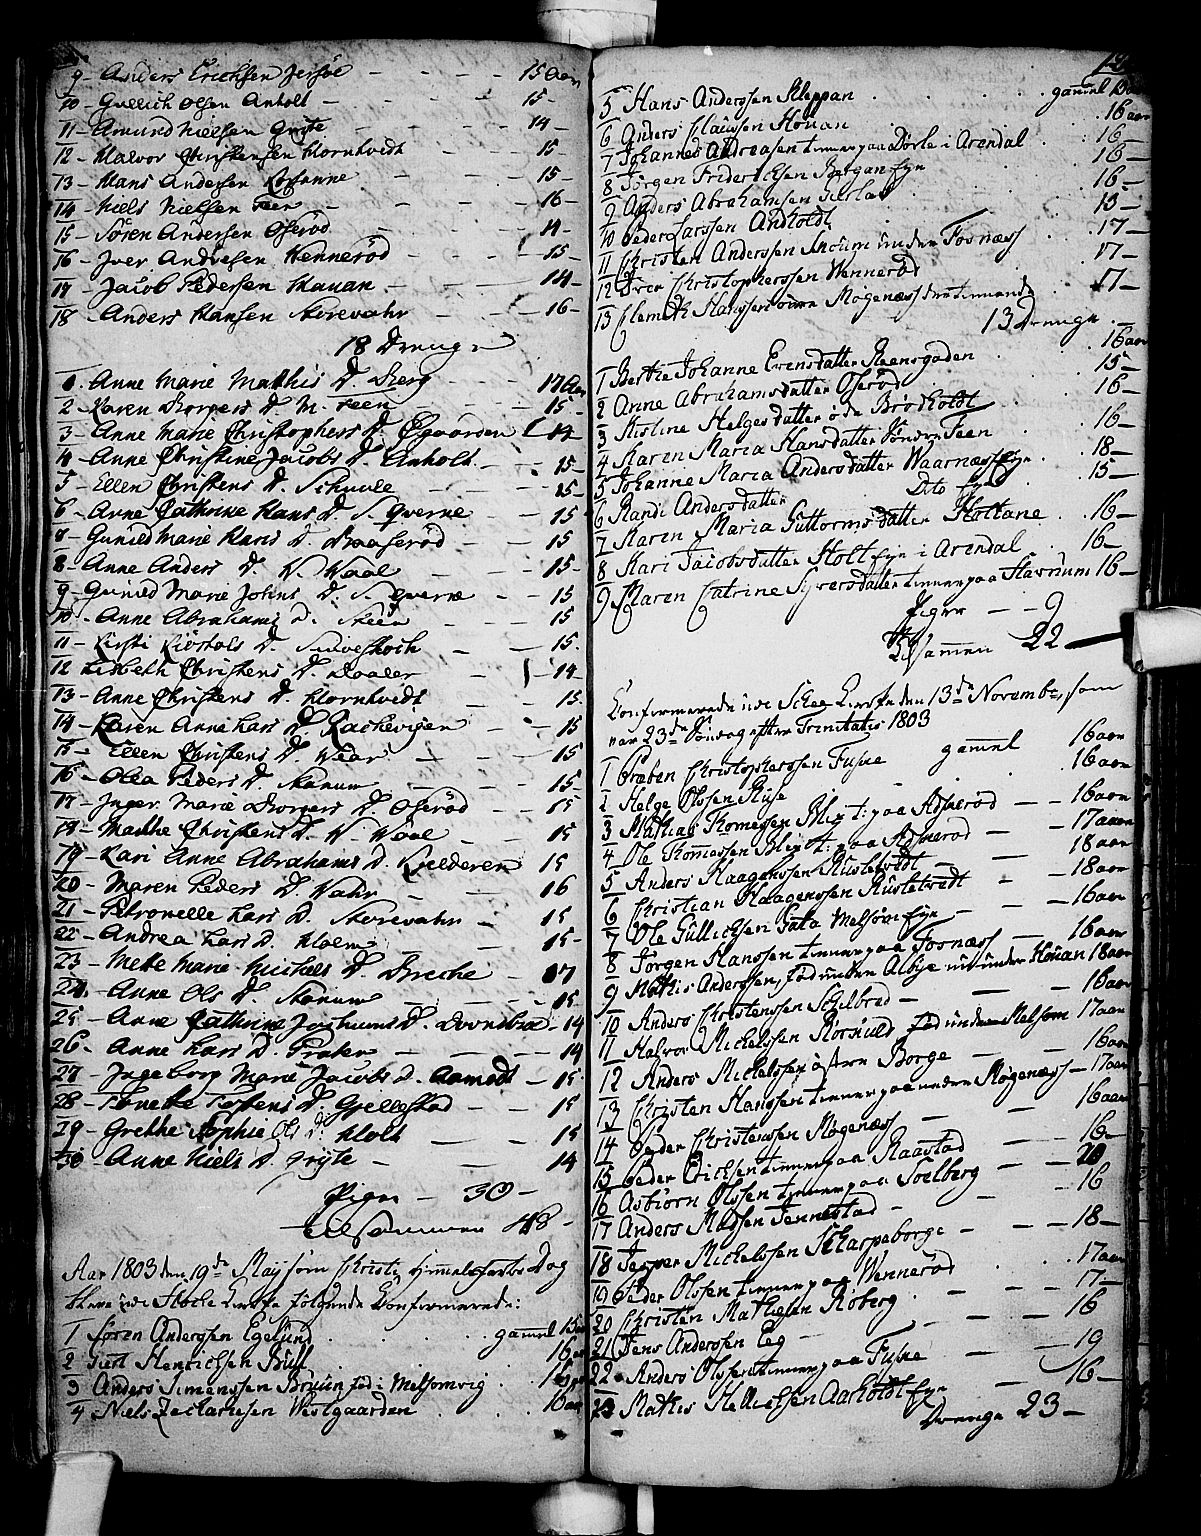 9 - Anders Erichsen Jersöe - - - - 15 Aar
10 - Gullich Olsen Anholt - - - - 15 -
11 - Amund Nielsen Gryte - - - - 14 -
12 - Halvor Christensen Horntvedt - - - 15 -
13 - Hans Andersen - - - 15 -
14 - Niels Nielsen Feen - - - - 16 -
15 - Sören Andersen Oserød - - - 14 -
16 - Iver Andresen Wennerød - - - 15 -
17 - Jacob Pedersen Hauan - - - 14 -
18 - Anders Hansen Storevahr - - - 16 -
18 Drenge
1. Anne Marie Mathis D. Berg - - - 17 Aar
2 - Karen Borgers D. M. Feen - - - 15 -
3 - Anne Marie Christophers D. - 14
4 - Anne Christine Jacobs D. Anholt - - 15 -
5 - Ellen Christens D. - - - 15 -
6 - Anne Cathrine Hans D. S. Qverne - - 15
7 - Gunild Marie Hans D. - - 15
8 - Anne Anders D. N. Waal - - - 15 -
9 - Gunild Marie Johns D. S. Qverne - - 15
10 - Anne Abrahams D. Skeen - - - 15
11 - Kirsti D. - - - 15.
12 - Lisbeth Christens D. - - 14
13 - Anne Christens D. Horntvedt - - 15.
14 - Karen Anne Lars D. Rachevigen - - 15
15 - Ellen Christens D. Wear - - - 15
16 - Olea Peders D. Skanum - - - 15 -
17 - Inger Marie Borgers D. Oserød - - 15
18 - Marthe Christens D. N. Waal - - 15
19 - Kari Anne Abrahams D. Kjelderen 15
20 - Maren Peders D. Vahr - - - 16
21 - Petronelle Lars D. Storevahr - - 15
22 - Andrea Lars D. Holem - - 15 -
23 - Mette Marie Michels D. - 17
24. - Anne Ols D. Skanum - - - 15.
25 - Anne Cathrine Jochums D. - 14
26 - Anne Lars D. - - - 14
27 - Ingeborg Marie Jacobs D. Aamodt - 15
28 - Tonette Tostens D. Gjellestad - - 15
29 - Grethe Sophie Ols D. Holt - - 15
30 - Anne Niels D. Gryte - - - 14
Piger - 30 -
Tilsammen 48 -
Aar 1803 den 19de Maj som Christi Himmelfarts Dag
bleve i Kirke følgende Confirmerede:
1 Søren Anderssen Egelund . . . gammel 15 aar
2 Henrichsen Bull . . . 16 aar
3 Anders Simenssen Bruun, fød i Melsomvig . 16 aar
4 Niels Zachariesen Westgaarden . . . 16 aar
5 Hans Anderssen Kleppan . . . . gammel 15 aar
6 Anders Claussen Houan . . . . 16 aar
7 Johannes Andreasen tienner paa Dørle i Arendal . 16 -
8 Jørgen Friderichsen . . . . 16 -
9 Anders Abrahamsen . . . 16 -
10 Peder Larssen Andholdt . . . 15 -
11 Christen Anderssen Moum under Fosnæss . . 17 -
12 Iver Christopherssen Wennerød . . . 17 -
13 Clemeth Hanssen Møgenæss . 17 -
13 Drenge .
1 Berthe Johanne Evensdatter Steensgaden . . . 16 aar
2 Anne Abrahamsdatter Oserød . . 15 -
3 Kistine Helgesdatter øde Brødholdt . . 16 -
4 Karen Maria Hansdatter Søndre Feen . . 16 -
5 Johanne Maria Andersdatter Waarnæss Eye . 18 -
6 Randi Andersdatter Dito Eye . . 15 -
7 Karen Maria Guttormsdatter Holtane . . 16 -
8 Kari Jacobsdatter Holt Eye i Arendal . 16 -
9 Maren Catrine Syversdatter tienner paa Havnum 16 -
Piger - - 9
Tilsammen 22
Confirmerede udi Schee Kirke den 13de Novembr, som
var 23de Søndag efter Trinitatis 1803
1 Preben Christopherssen Fuske gammel 16 aar
2 Helge Olssen Ruse . 16 aar
3 Mathias Tomessen t: paa Adsnerød - - 16 aar
4 Ole Tomassen t: paa Adsnerød - - 17 aar
5 Anders Haagenssen Rusletvedt - - 18 aar
6 Christian Haagenssen Rusletvedt - - 18 aar
7 Ole Gullichsen Gata Melsom Eye - - 16 aar
8 Jørgen Hanssen tienner paa Fosnæss - 16 aar
9 Mathis Anderssen, fød under Albye nu under Houan 18 aar
10 Anders Christenssen Schelbred - - - 16 aar
11 Halvor Michelssen fød under Melsom 17 aar
12 Anders Michelssen østre Borge - - 16 aar
13 Christen Hanssen tienner paa under Møgenæss - 17 aar
14 Peder Christenssen Møgenæss - - 16 aar
15 Peder Erichsen tienner paa Raastad - 16 -
16 Asbiørn Olssen tienner paa Soelberg - - 20
17 Anders Madsen Tennestad - - - 16
18 Jesper Michelssen Scharpeborge - - 18 -
19 Peder Olssen tienner paa Wennerød . . . 17 aar
20 Christen Mathissen Røberg . - - 17 -
21 Jens Anderssen Eeg - - - 16
22 Anders Olssen tienner paa Fuske - - 19
23 Mathis Hellichsen Aarholdt Eye - - 16 -
Drenge 23 -